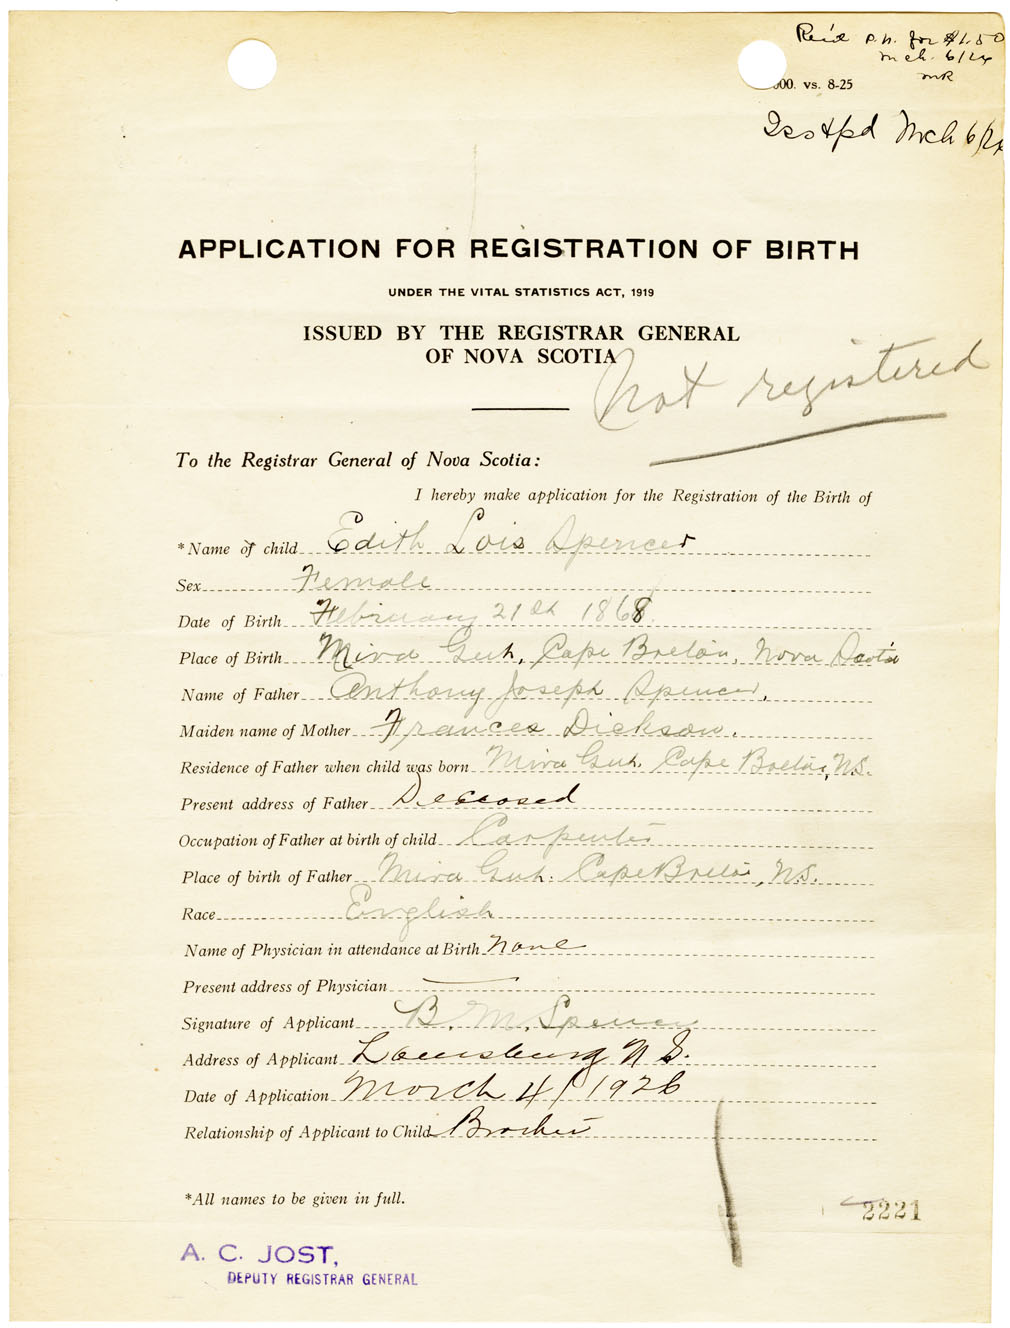 Rec'd P.N. for $1.50
Mch. 6/26
MR
000. vs. 8-25
Iss & pd Mch 6/26
APPLICATION FOR REGISTRATION OF BIRTH
UNDER THE VITAL STATISTICS ACT, 1919
ISSUED BY THE REGISTRAR GENERAL
OF NOVA SCOTIA
Not registered
To the Registrar General of Nova Scotia:
I hereby make application for the Registration of the Birth of
*Name of child Edith Lois Spencer
Sex Female
Date of Birth February 21st 1868.
Place of Birth Mira Gut, Cape Breton, Nova Scotia
Name of Father Anthony Joseph Spencer.
Maiden name of Mother Frances Dickson.
Residence of Father when child was born Mira Gut. Cape Breton, N.S.
Present address of Father Deceased
Occupation of Father at birth of child Carpenter
Place of birth of Father Mira Gut. Cape Breton, N.S.
Race English
Name of Physician in attendance at Birth None
Present address of Physician
Signature of Applicant B. M. Spencer
Address of Applicant Louisburg N.S.
Date of Application March 4/1926
Relationship of Applicant to Child Brother
*All names to be given in full.
2221
A. C. JOST,
DEPUTY REGISTRAR GENERAL